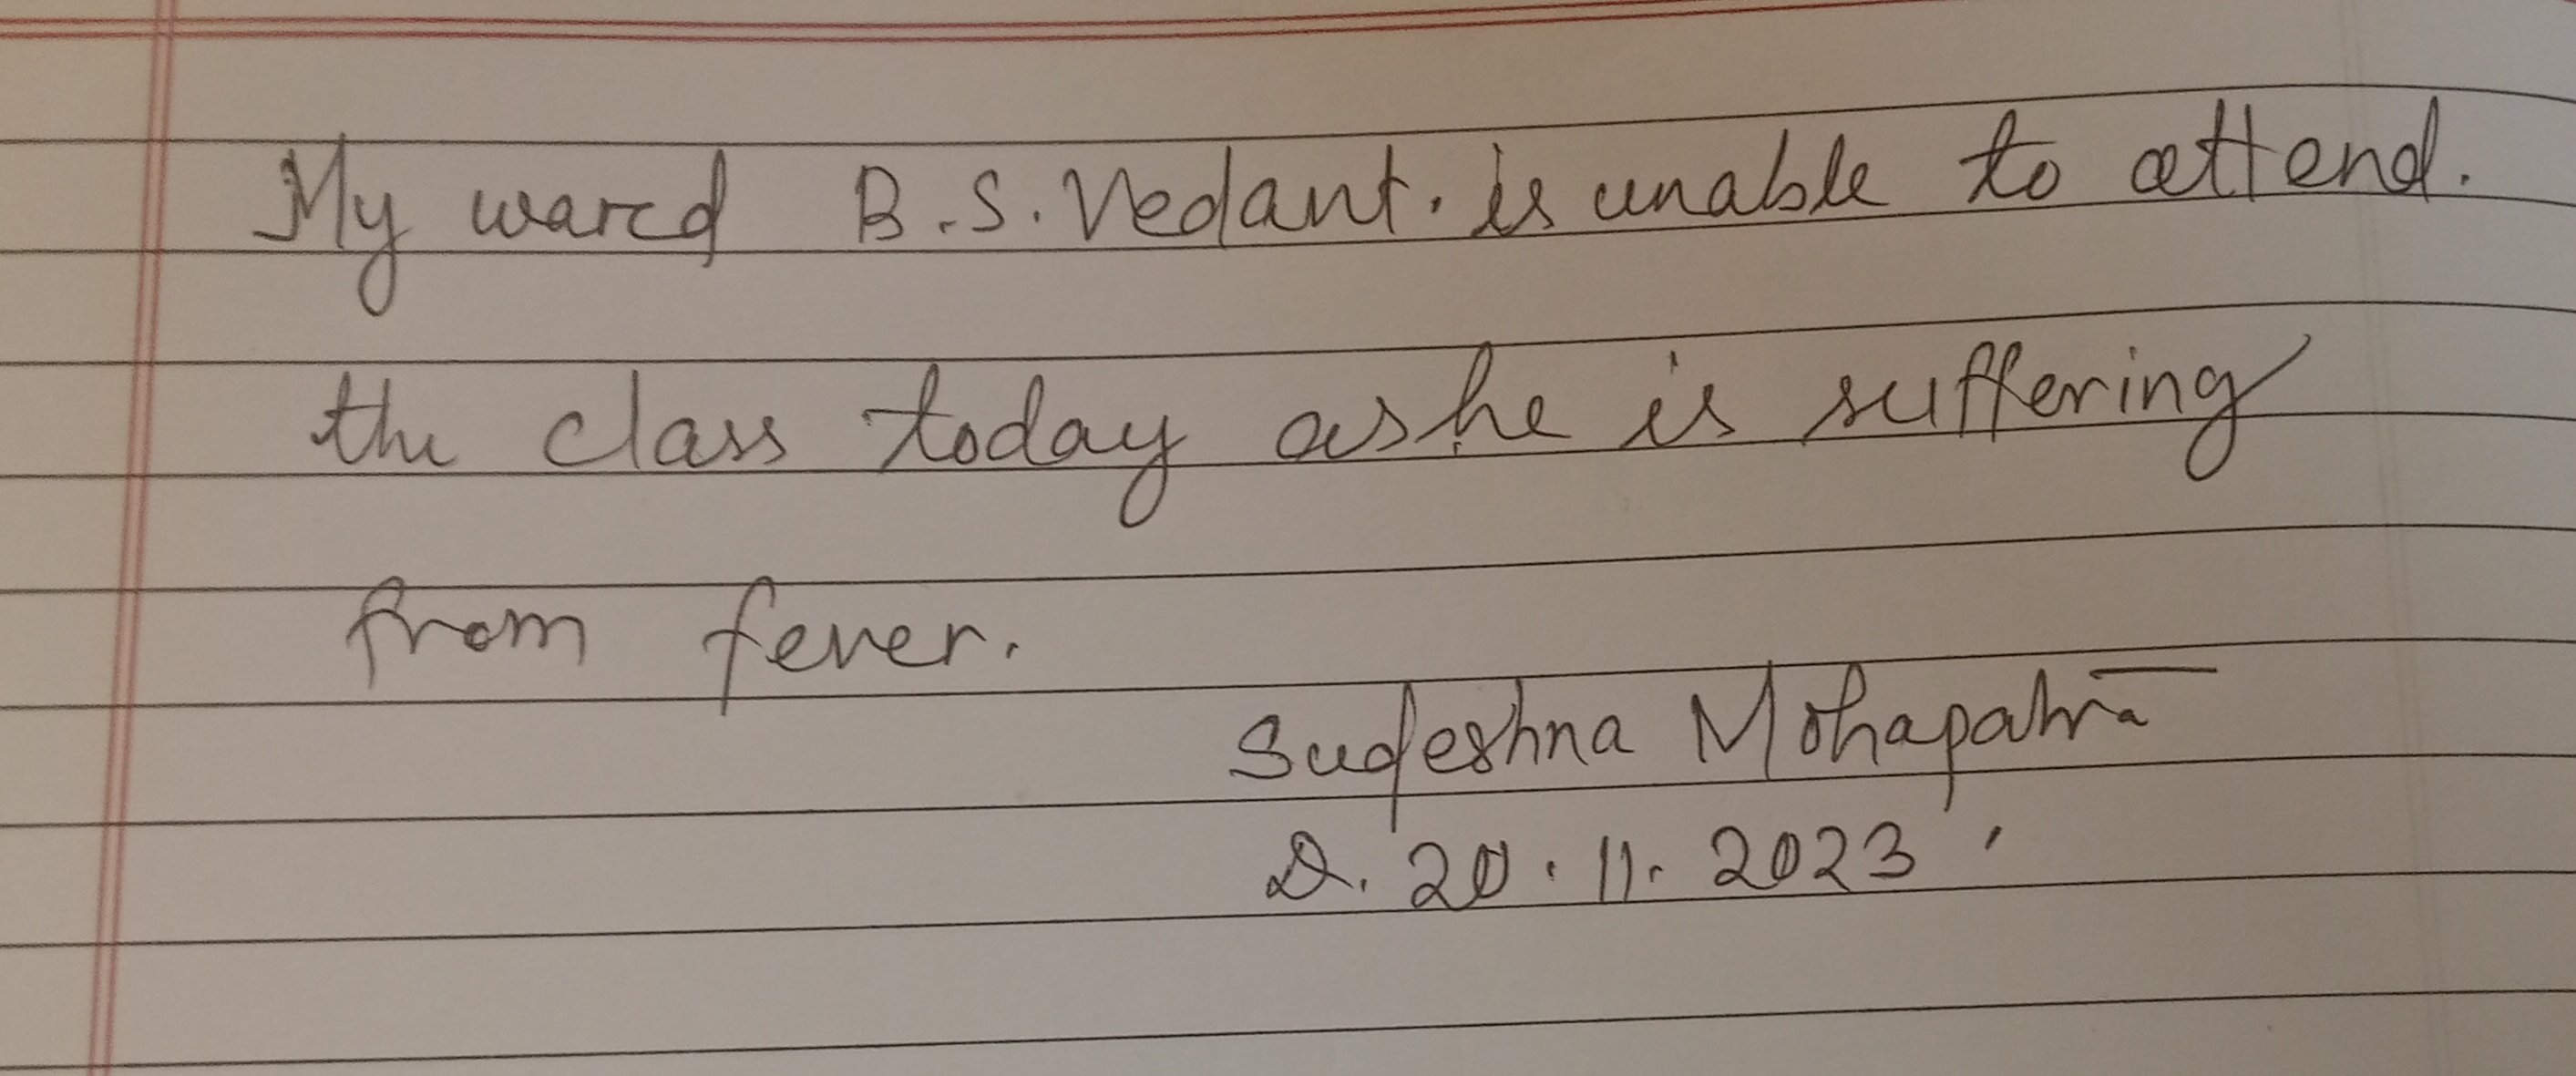 My ward B.S. Vedant. is unable to attend.
the class today as he is suffering
from fever.
Sudeshna Mohapatra
D. 20.11.2023